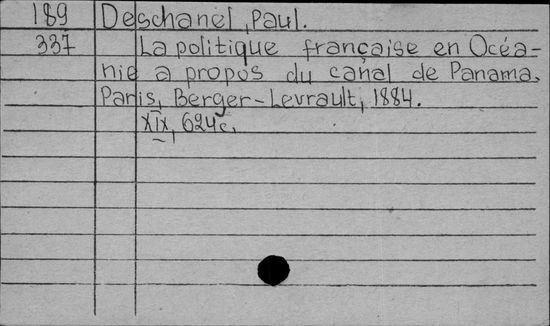 189 Deschanel, Paul.
337 La politique française en Océa-
nie a propos du canal de Panama.
Paris, Berger-Levrault, 1884.
XIX, 624c.